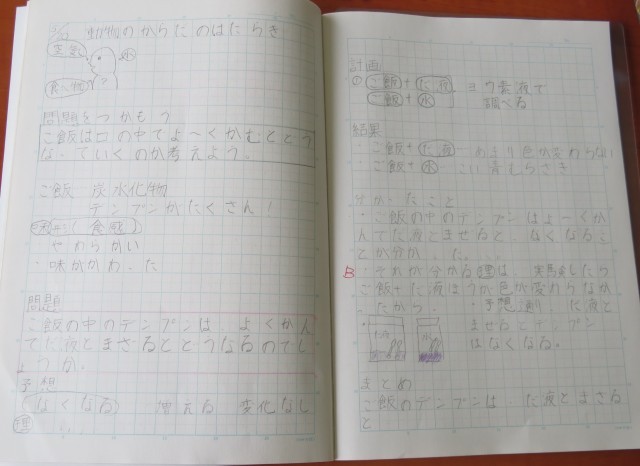 動物のからだのはたらき
空気
水
食べ物
問題をつかもう
ご飯は口の中でよ～くかむとどう
なっていくのか考えよう。
ご飯－炭水化物
デンプンがたくさん！
食感
・やわらかい
・味がかわった
問題
ご飯の中のデンプンは、よくかん
でだ液とまざるとどうなるのでし
ょうか。
予想
なくなる 増える 変化なし
理
計画
① ご飯+だ液 ヨウ素液で
ご飯+水 調べる
結果
・ご飯+だ液 — あまり色が変わらない
・ご飯+水 — こい青むらさき
分かったこと
・ご飯の中のデンプンはよ～くか
んでだ液とまぜると なくなるこ
とが分かった。
B ・それが分かる理は、実験をしたら
ご飯+だ液はうが色が変わらなか
ったから。 ・予想通り だ液と
まぜるとデンプン
はなくなる。
だ液
水
まとめ
ご飯のデンプンは、だ液とまざる
と